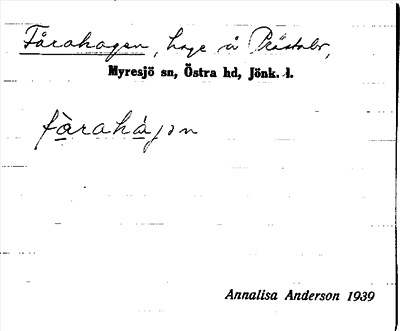 Fårahagen, hage å Prästabr,
Myresjö sn, Östra hd, Jönk. l.
fårahàgən
Annalisa Anderson 1939